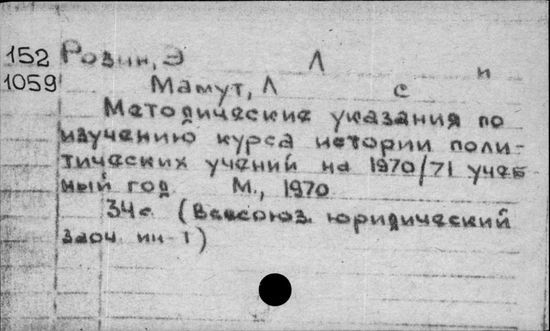 152 Розин, Э Л
1059 и
Мамут, Л С
Методические указания по
изучению курса истории поли-
тических учений на 1970/71 учеб-
ный год. М., 1970.
34с. (Всесоюз. юридический
заоч. ин-т)